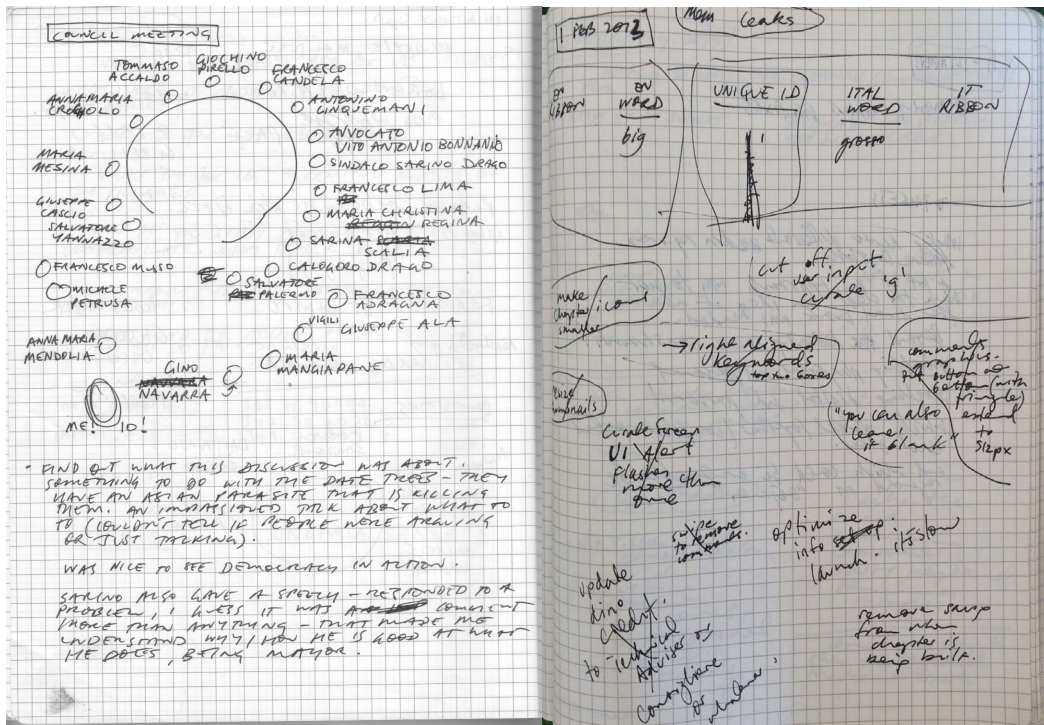 COUNCIL MEETING
TOMMASO
ACCALDO
GIOCHINO
PIRELLO
FRANCESCO
CANDELA
ANNAMARIA
ANTONINO
CINQUEMANI
AVVOCATO
VITO ANTONIO BONNANNO
SINDACO SARINO DRAGO
MARIA
MESINA
FRANCESCO LIMA
GIUSEPPE
CASCIO
MARIA CHRISTINA
REGINA
SALVATORE
YANNAZZO
SARINA
SCALIA
FRANCESCO MUSSO
CALOGORO DRAGO
MICHELE
PETRUSA
SALVATORE
PALERMO
FRANCESCO
ADRAGNA
VIGILI
GIUSEPPE ALA
ANNA MARIA
MENDOLIA
MARIA
MANGIAPANE
GINO
NAVARRA
NAVARRA
ME! IO!
- FIND OUT WHAT THIS DISCUSSION WAS ABOUT.
SOMETHING TO DO WITH THE DATE TREES - THEY
HAVE AN ASIAN PARASITE THAT IS KILLING
THEM. AN IMPASSIONED TALK ABOUT WHAT TO
TO (COULDN'T TELL IF PEOPLE WERE ARGUING
OR JUST TALKING).
WAS NICE TO SEE DEMOCRACY IN ACTION.
SARINO ALSO GAVE A SPEECH - RESPONDED TO A
PROBLEM, I GUESS IT WAS COMMENT
MORE THAN ANYTHING - THAT MADE ME
UNDERSTAND WHY/HOW HE IS GOOD AT WHAT
HE DOES, BEING MAYOR.
1 FEB 2013
Mem leaks
EN
RIBBON
EN
WORD
big
UNIQUE ID
1
ITAL
WORD
grosso
IT
RIBBON
cut off
user input
curate 'g'
make
chapter icons
smaller
→ right aligned
keywords
top two boxes
comments
graphics.
put button at
bottom (with
triangle)
extend
to
512px
resize
thumbnails
"you can also
leave
it blank"
curate screen
UI Alert
flashes
more than
once
swipe
to remove
commands.
optimize
info set up.
launch. its slow
update
dino
credit.
to Technical
Adviser or
consigliere
or
whatever.
remove swipe
from when
chapter is
being built.